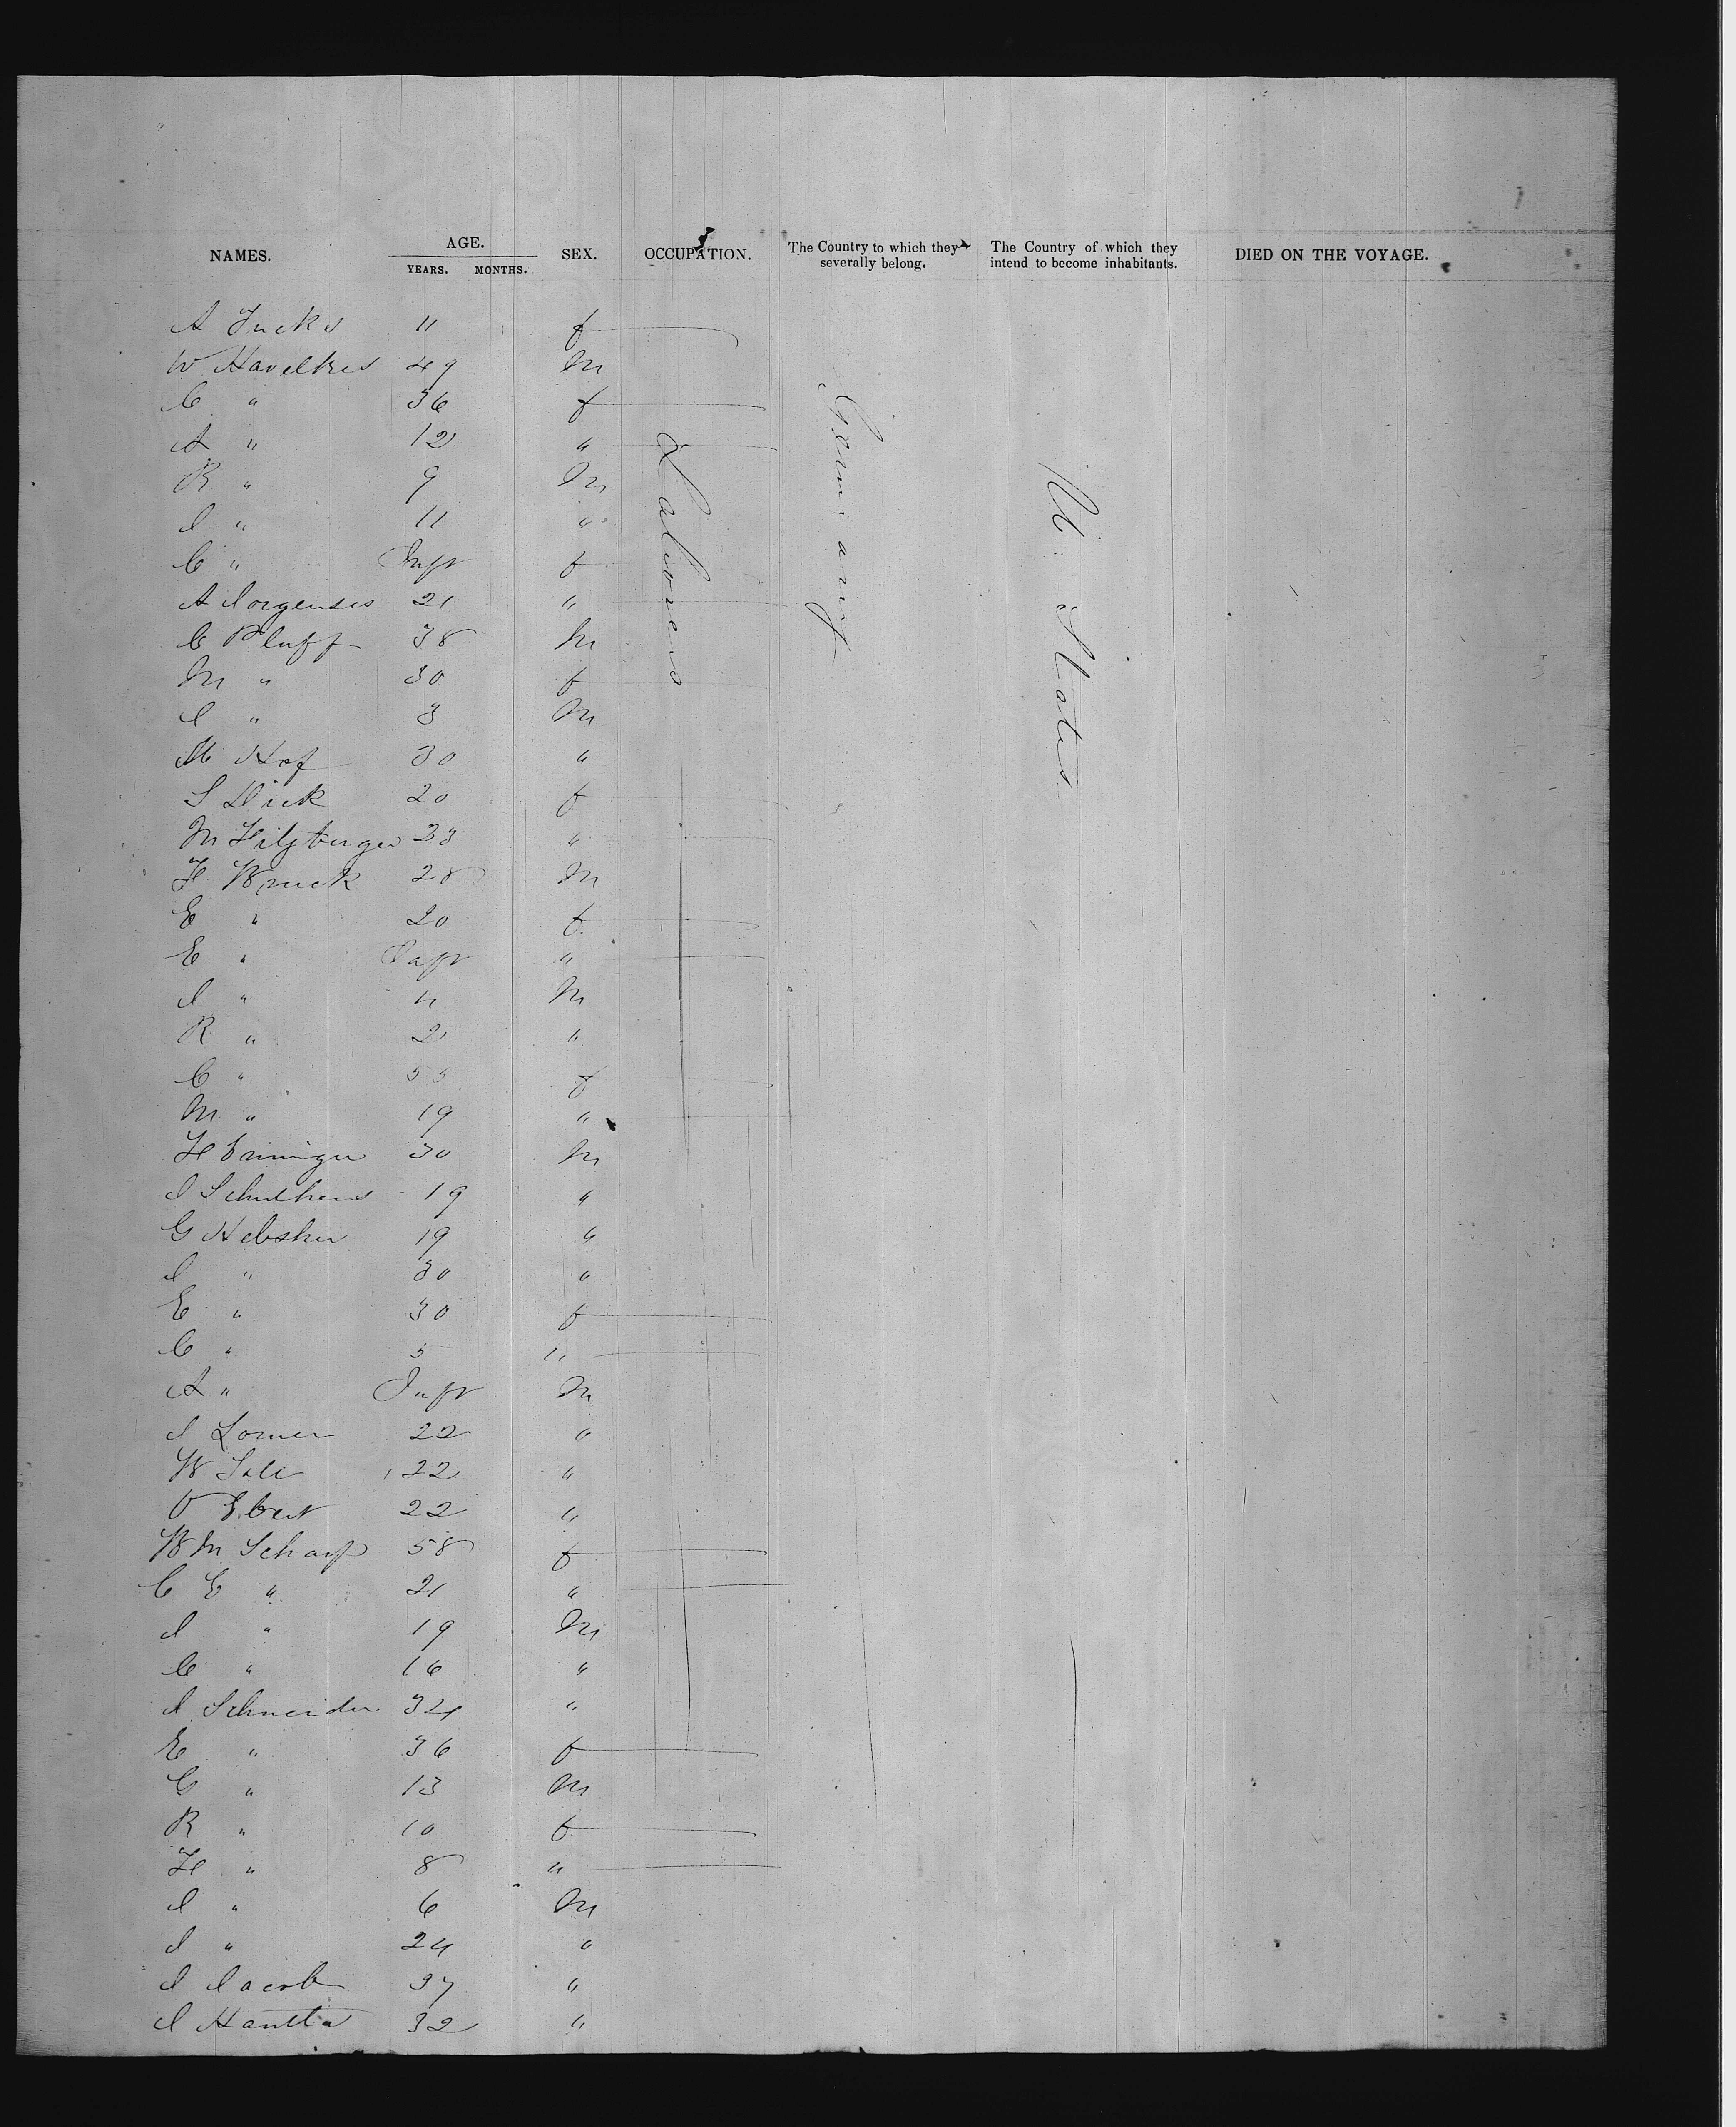 NAMES. AGE. SEX. OCCUPATION. The Country to which they severally belong. The Country of which they intend to become inhabitants. DIED ON THE VOYAGE.
YEARS. MONTHS.
Laborers
Germany
U. States
A Fucks 11 f
W 49 M
C " 36 f
A " 12 "
R " 9 M
J " 11 "
C " Inft f
A Jorgenses 21 "
C Pluff 38 M
M " 30 f
J " 3 M
M Hof 30 "
S Dick 20 f
M 33 "
F Wruck 28 M
E " 20 f
E " Inft "
J " 4 M
R " 2 "
C " 55 f
M " 19 "
H 30 M
J 19 "
G 19 "
J " 30 "
E " 30 f
C " 5 "
A " Inft M
J Lorner 22 "
W 22 "
O Ebert 22 "
W M Scharf 58 f
C E " 21 "
J " 19 M
C " 16 "
J Schneider 34 "
E " 36 f
G " 13 M
R " 10 f
H " 8 "
J " 6 M
J " 24 "
J Jacob 37 "
J 32 "